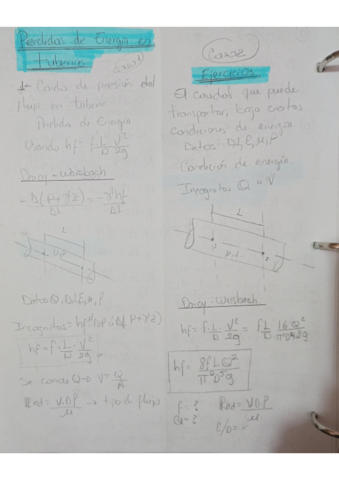 Perdidas de Energía en
tuberias
Caso 1
1- Caida de presión del
flujo en tuberia
Perdida de Energía
Usando hf = f L/D V²/2g
Darcy-Weisbach
- Δ(P+γz)/ΔL = -γhf/ΔL
L
Datos Q, D, L, E, μ, ρ
Incognitas = hf
hf = f · L/D · V²/2g
Se conoce Q → V = Q/A
Red = VDρ/μ → tipo de flujo
Caso 2
Ejercicios
El caudal que puede
transportar, bajo ciertas
condiciones de energia
Datos = D, L, E, μ, ρ
Condición de energía.
Incognitas Q o V
L
Darcy-Weisbach
hf = f L/D V²/2g = f L/D 16Q²/π²D⁴2g
hf = 8fLQ²/π²D⁵g
f = ? Red = VDρ/μ
Q = ? E/D =